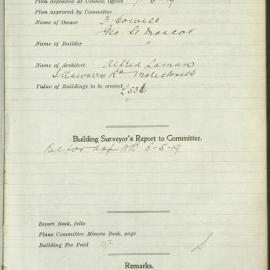 Plan deposited at Council Office 7-5-19
Plan approved by Committee
Name of Owner F. Cowell
Geo St Mascot
Name of Builder "
Name of Architect Alfred Laman
Illawarra Rd
Value of Buildings to be erected £
Building Surveyor's Report to Committee.
Rec for app 8-5-19
Report Book, folio
Plans Committee Minute Book, page
Building Fee Paid
Remarks.